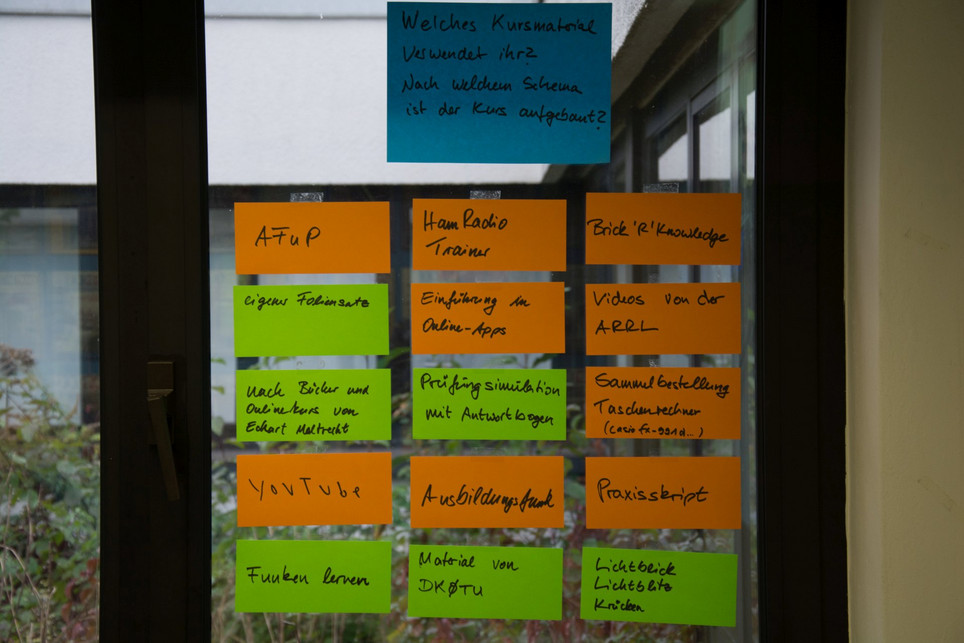 Welches Kursmaterial
Verwendet ihr?
Nach welchem Schema
ist der Kurs aufgebaut?
AFuP
HamRadio
Trainer
Brick'R'Knowledge
eigener Foliensatz
Einführung in
Online-Apps
Videos von der
ARRL
nach Bücher und
Onlinekurs von
Eckart Moltrecht
Prüfungsimulation
mit Antwortbogen
Sammelbestellung
Taschenrechner
(casio fx-991d...)
YouTube
Ausbildungsfunk
Praxisskript
Funken lernen
Material von
DKØTU
Lichtblick
Lichtblitz
Krücken